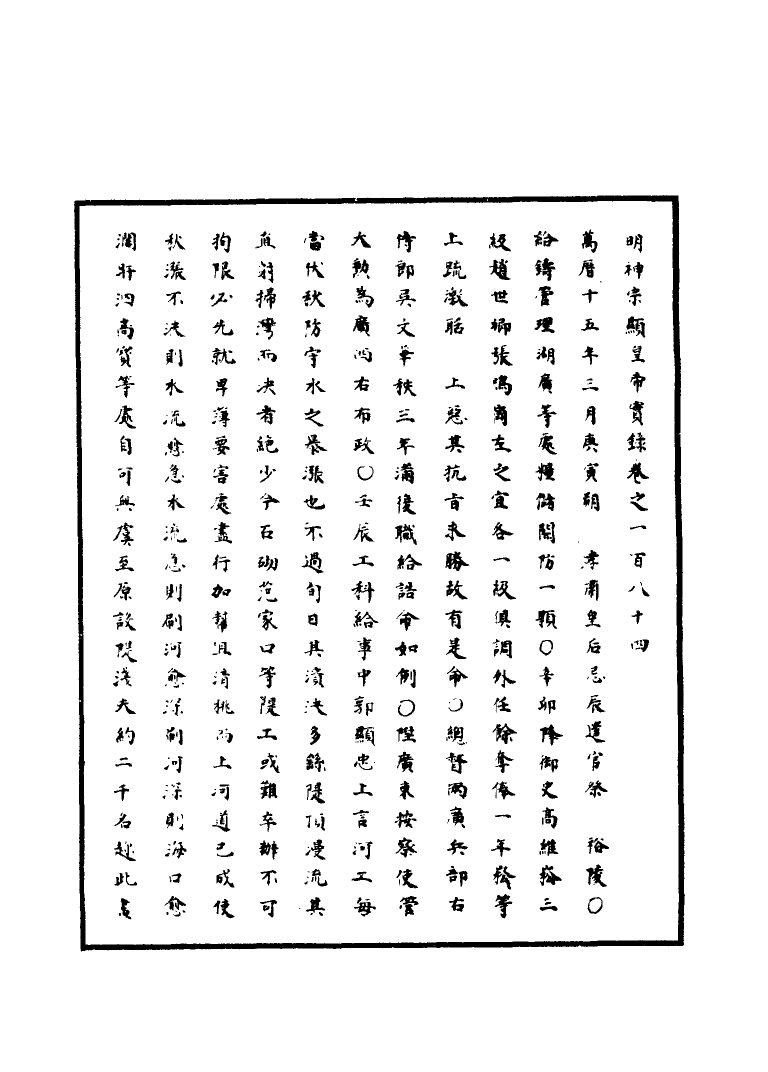 明神宗顯皇帝實錄卷之一百八十四
萬曆十五年三月庚寅朔　孝肅皇后忌辰遣官祭　裕陵○
給鑄管理湖廣等處糧儲關防一顆○辛卯降御史高維崧三
級趙世卿張鳴崗左之宜各一級俱調外任餘奪俸一年崧等
上疏激聒　上惡其抗旨求勝故有是命○總督兩廣兵部右
侍郎吳文華秩三年滿復職給誥命如例○陞廣東按察使管
大勳為廣西右布政○壬辰工科給事中郭顯忠上言河工每
當伏秋防守水之暴漲也不過旬日其潰決多繇隄頂漫流其
直射掃灣而決者絕少今石砌范家口等隄工或難卒辦不可
拘限必先就卑薄要害處盡行加幫且清桃而上河道已成使
秋漲不決則水流愈急水流急則刷河愈深刷河深則海口愈
濶將泗高寶等處自可無虞至原設隄淺夫約二千名趂此農